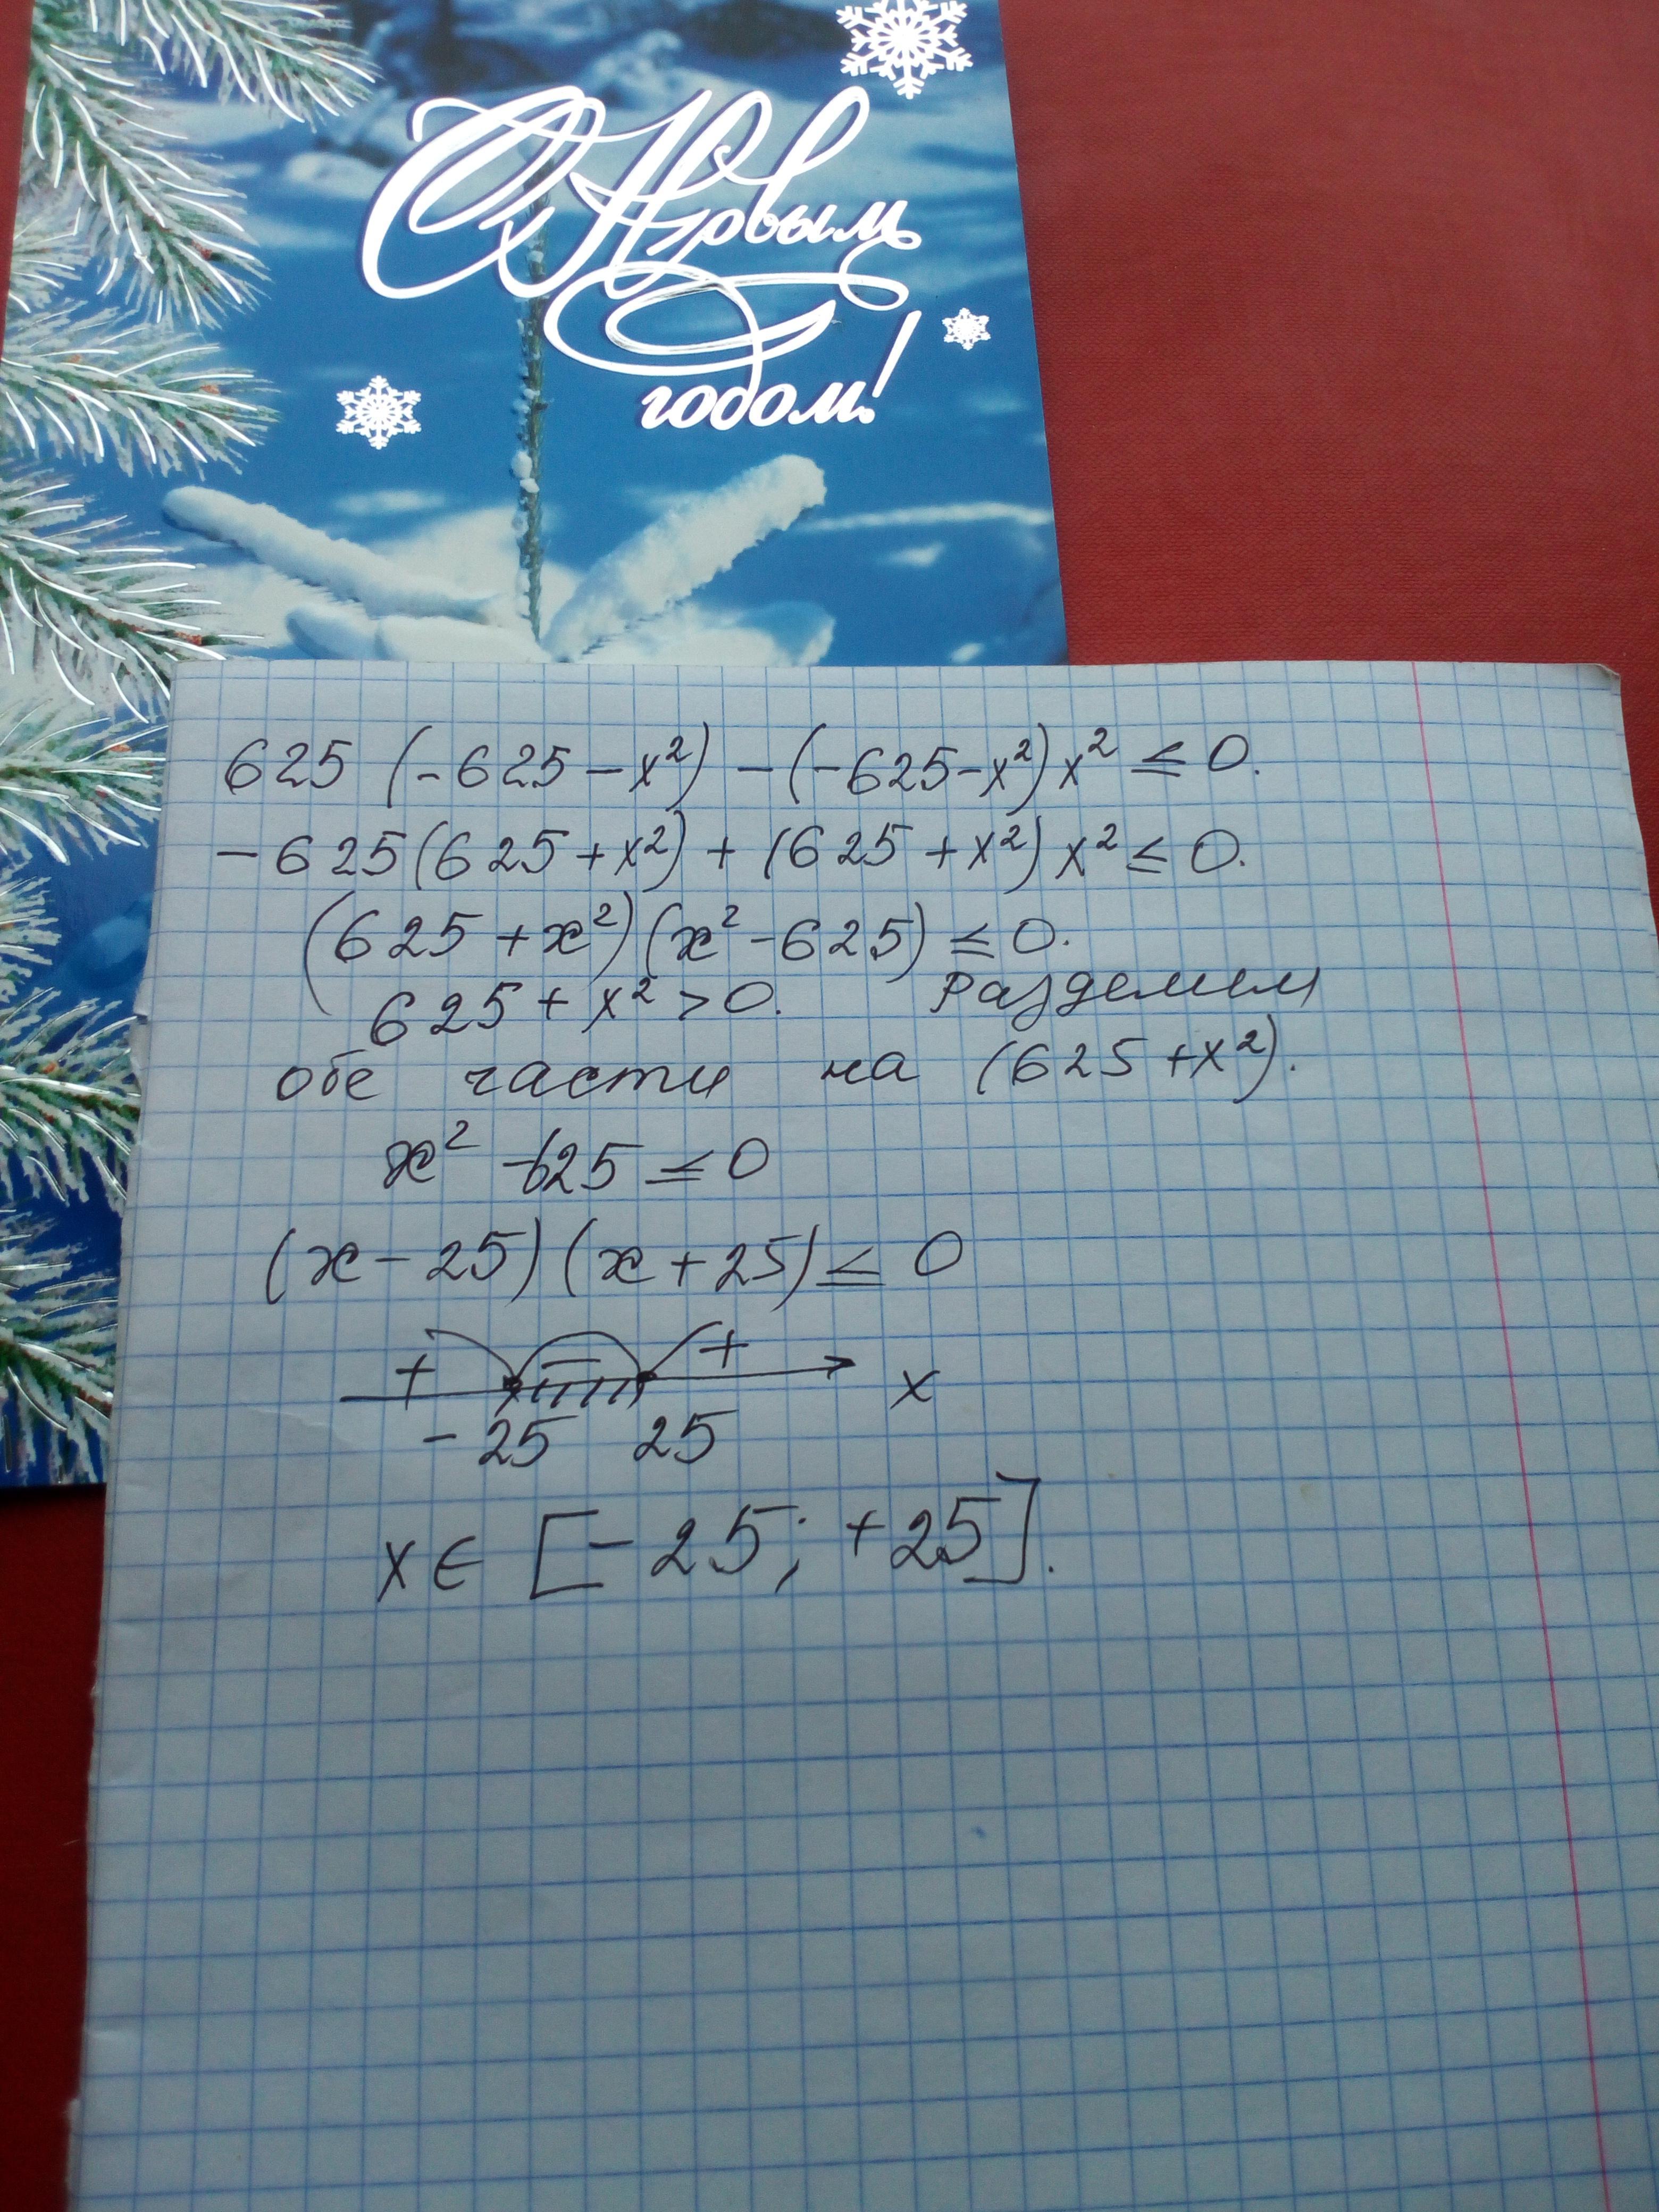 С Новым
годом!
625 (-625-x²) - (-625-x²)x² ≤ 0.
-625(625+x²) + (625+x²)x² ≤ 0.
(625+x²)(x²-625) ≤ 0.
625+x² > 0. Разделим
обе части на (625+x²).
x² -625 ≤ 0
(x-25)(x+25) ≤ 0
+ - + x
-25 25
x ∈ [-25; +25].